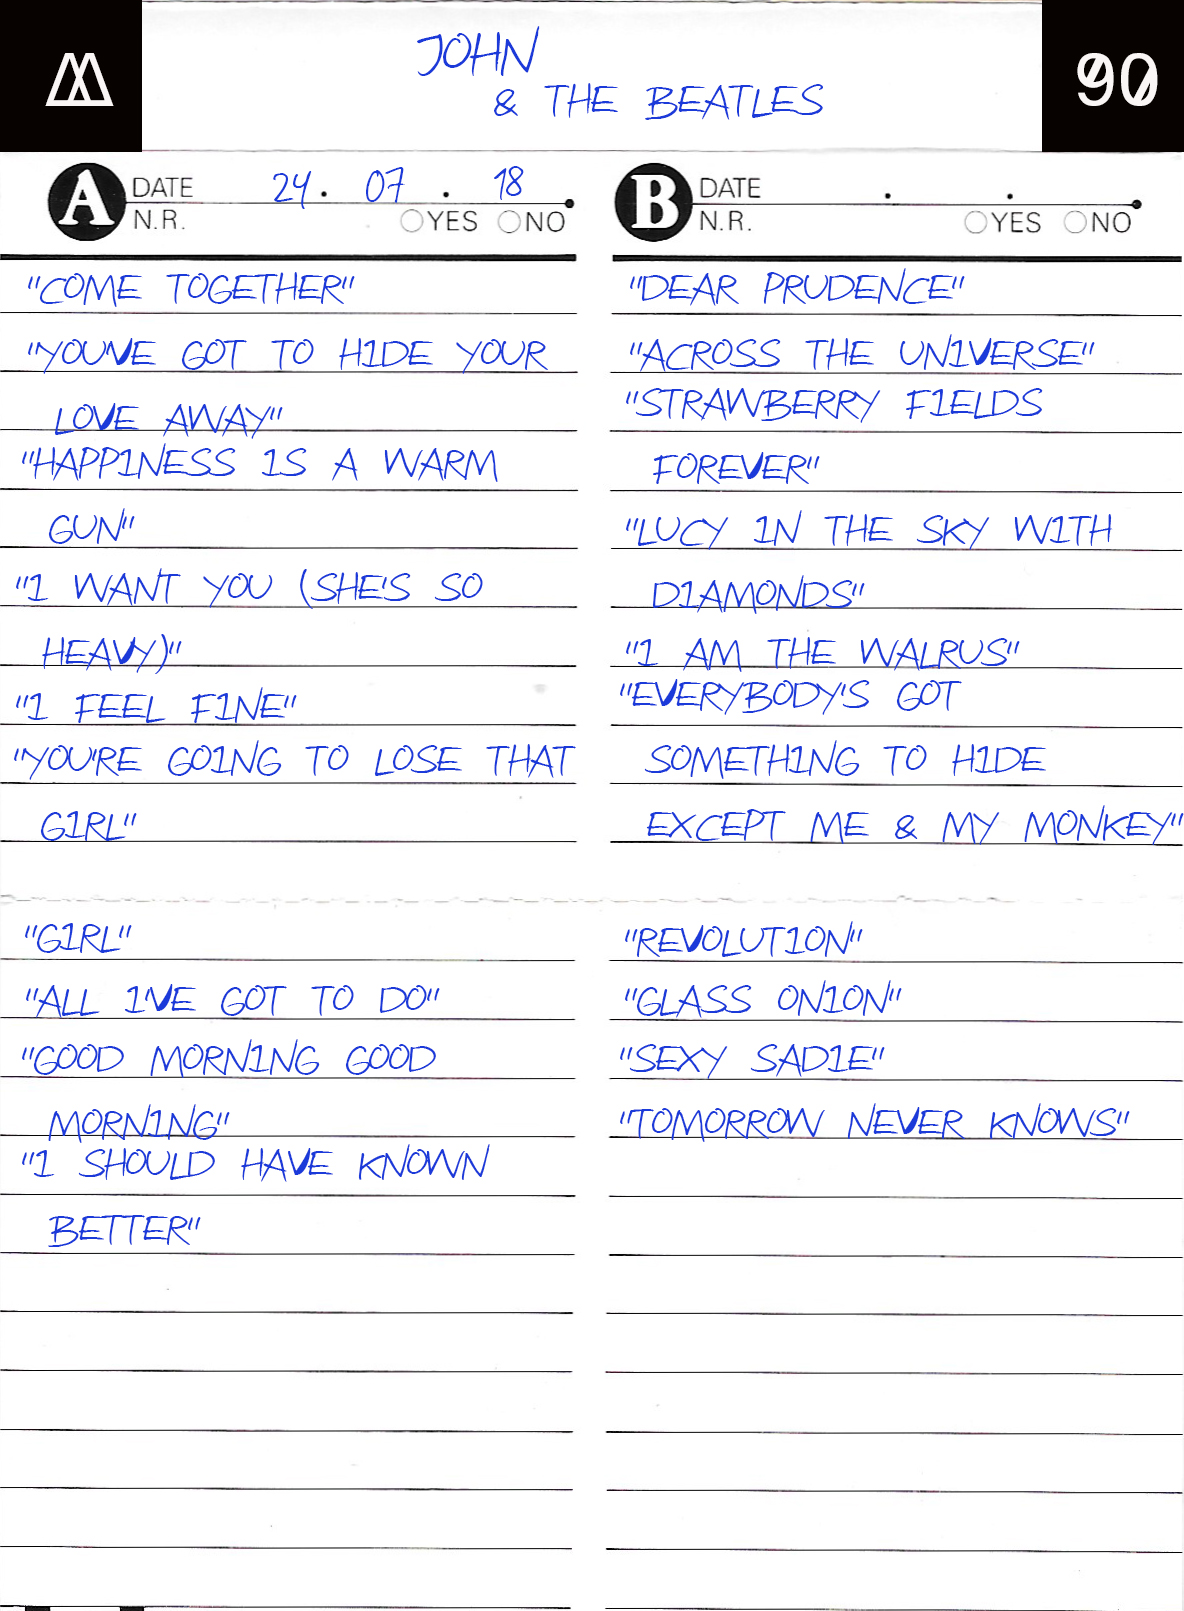 JOHN
& THE BEATLES
90
A DATE 24. 07 . 18
N.R. YES NO
"COME TOGETHER"
"YOU'VE GOT TO HIDE YOUR
LOVE AWAY"
"HAPPINESS IS A WARM
GUN"
"I WANT YOU (SHE'S SO
HEAVY)"
"I FEEL FINE"
"YOU'RE GOING TO LOSE THAT
GIRL"
"GIRL"
"ALL I'VE GOT TO DO"
"GOOD MORNING GOOD
MORNING"
"I SHOULD HAVE KNOWN
BETTER"
B DATE . .
N.R. YES NO
"DEAR PRUDENCE"
"ACROSS THE UNIVERSE"
"STRAWBERRY FIELDS
FOREVER"
"LUCY IN THE SKY WITH
DIAMONDS"
"I AM THE WALRUS"
"EVERYBODY'S GOT
SOMETHING TO HIDE
EXCEPT ME & MY MONKEY"
"REVOLUTION"
"GLASS ONION"
"SEXY SADIE"
"TOMORROW NEVER KNOWS"